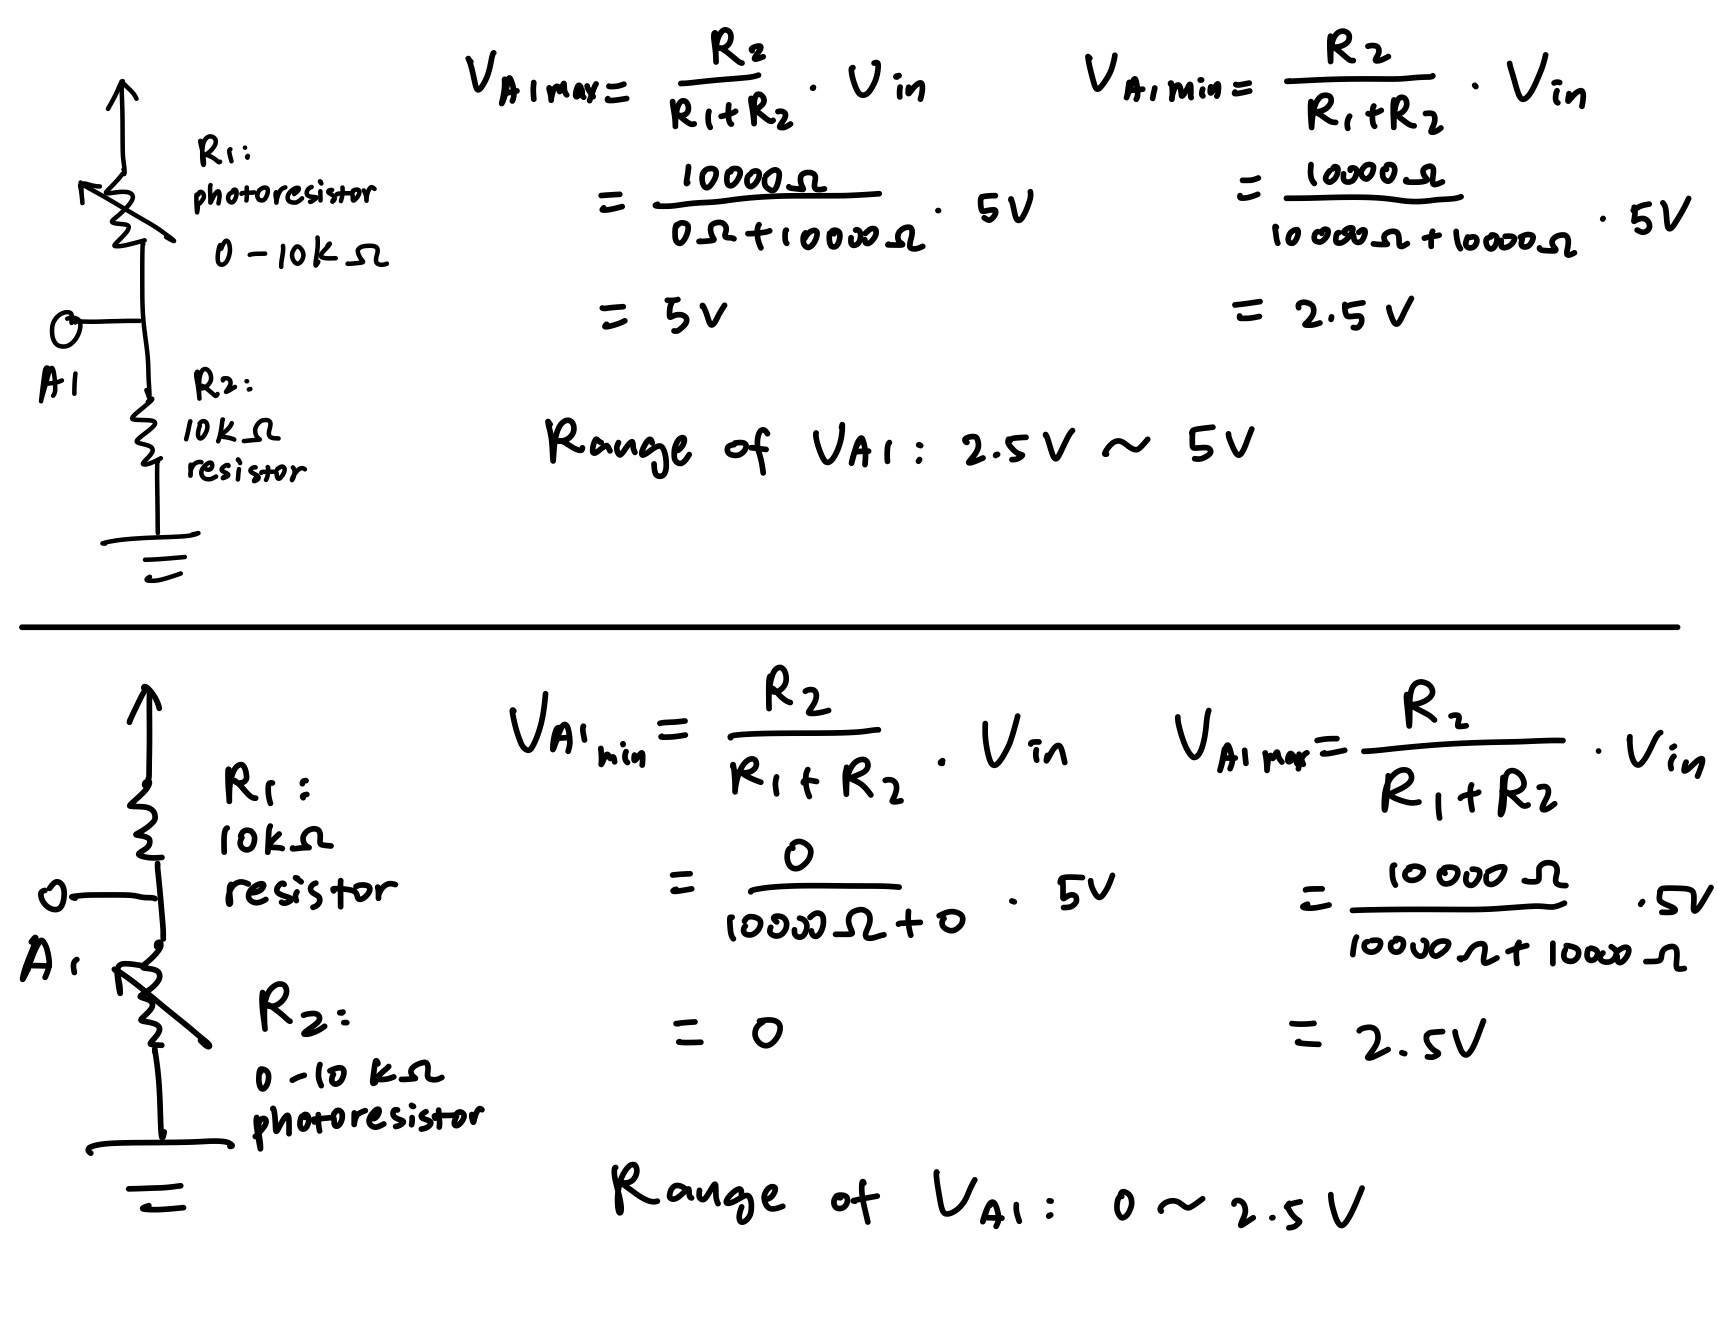 R1:
photoresistor
0-10kΩ
A1
R2:
10kΩ
resistor
VA1max = R2 / R1+R2 · Vin
= 10000Ω / 0Ω+10000Ω · 5V
= 5V
VA1min = R2 / R1+R2 · Vin
= 10000Ω / 10000Ω+10000Ω · 5V
= 2.5V
Range of VA1: 2.5V ~ 5V
R1:
10kΩ
resistor
A1
R2:
0-10kΩ
photoresistor
VA1min = R2 / R1+R2 · Vin
= 0 / 10000Ω+0 · 5V
= 0
VA1max = R2 / R1+R2 · Vin
= 10000Ω / 10000Ω+10000Ω · 5V
= 2.5V
Range of VA1: 0 ~ 2.5V